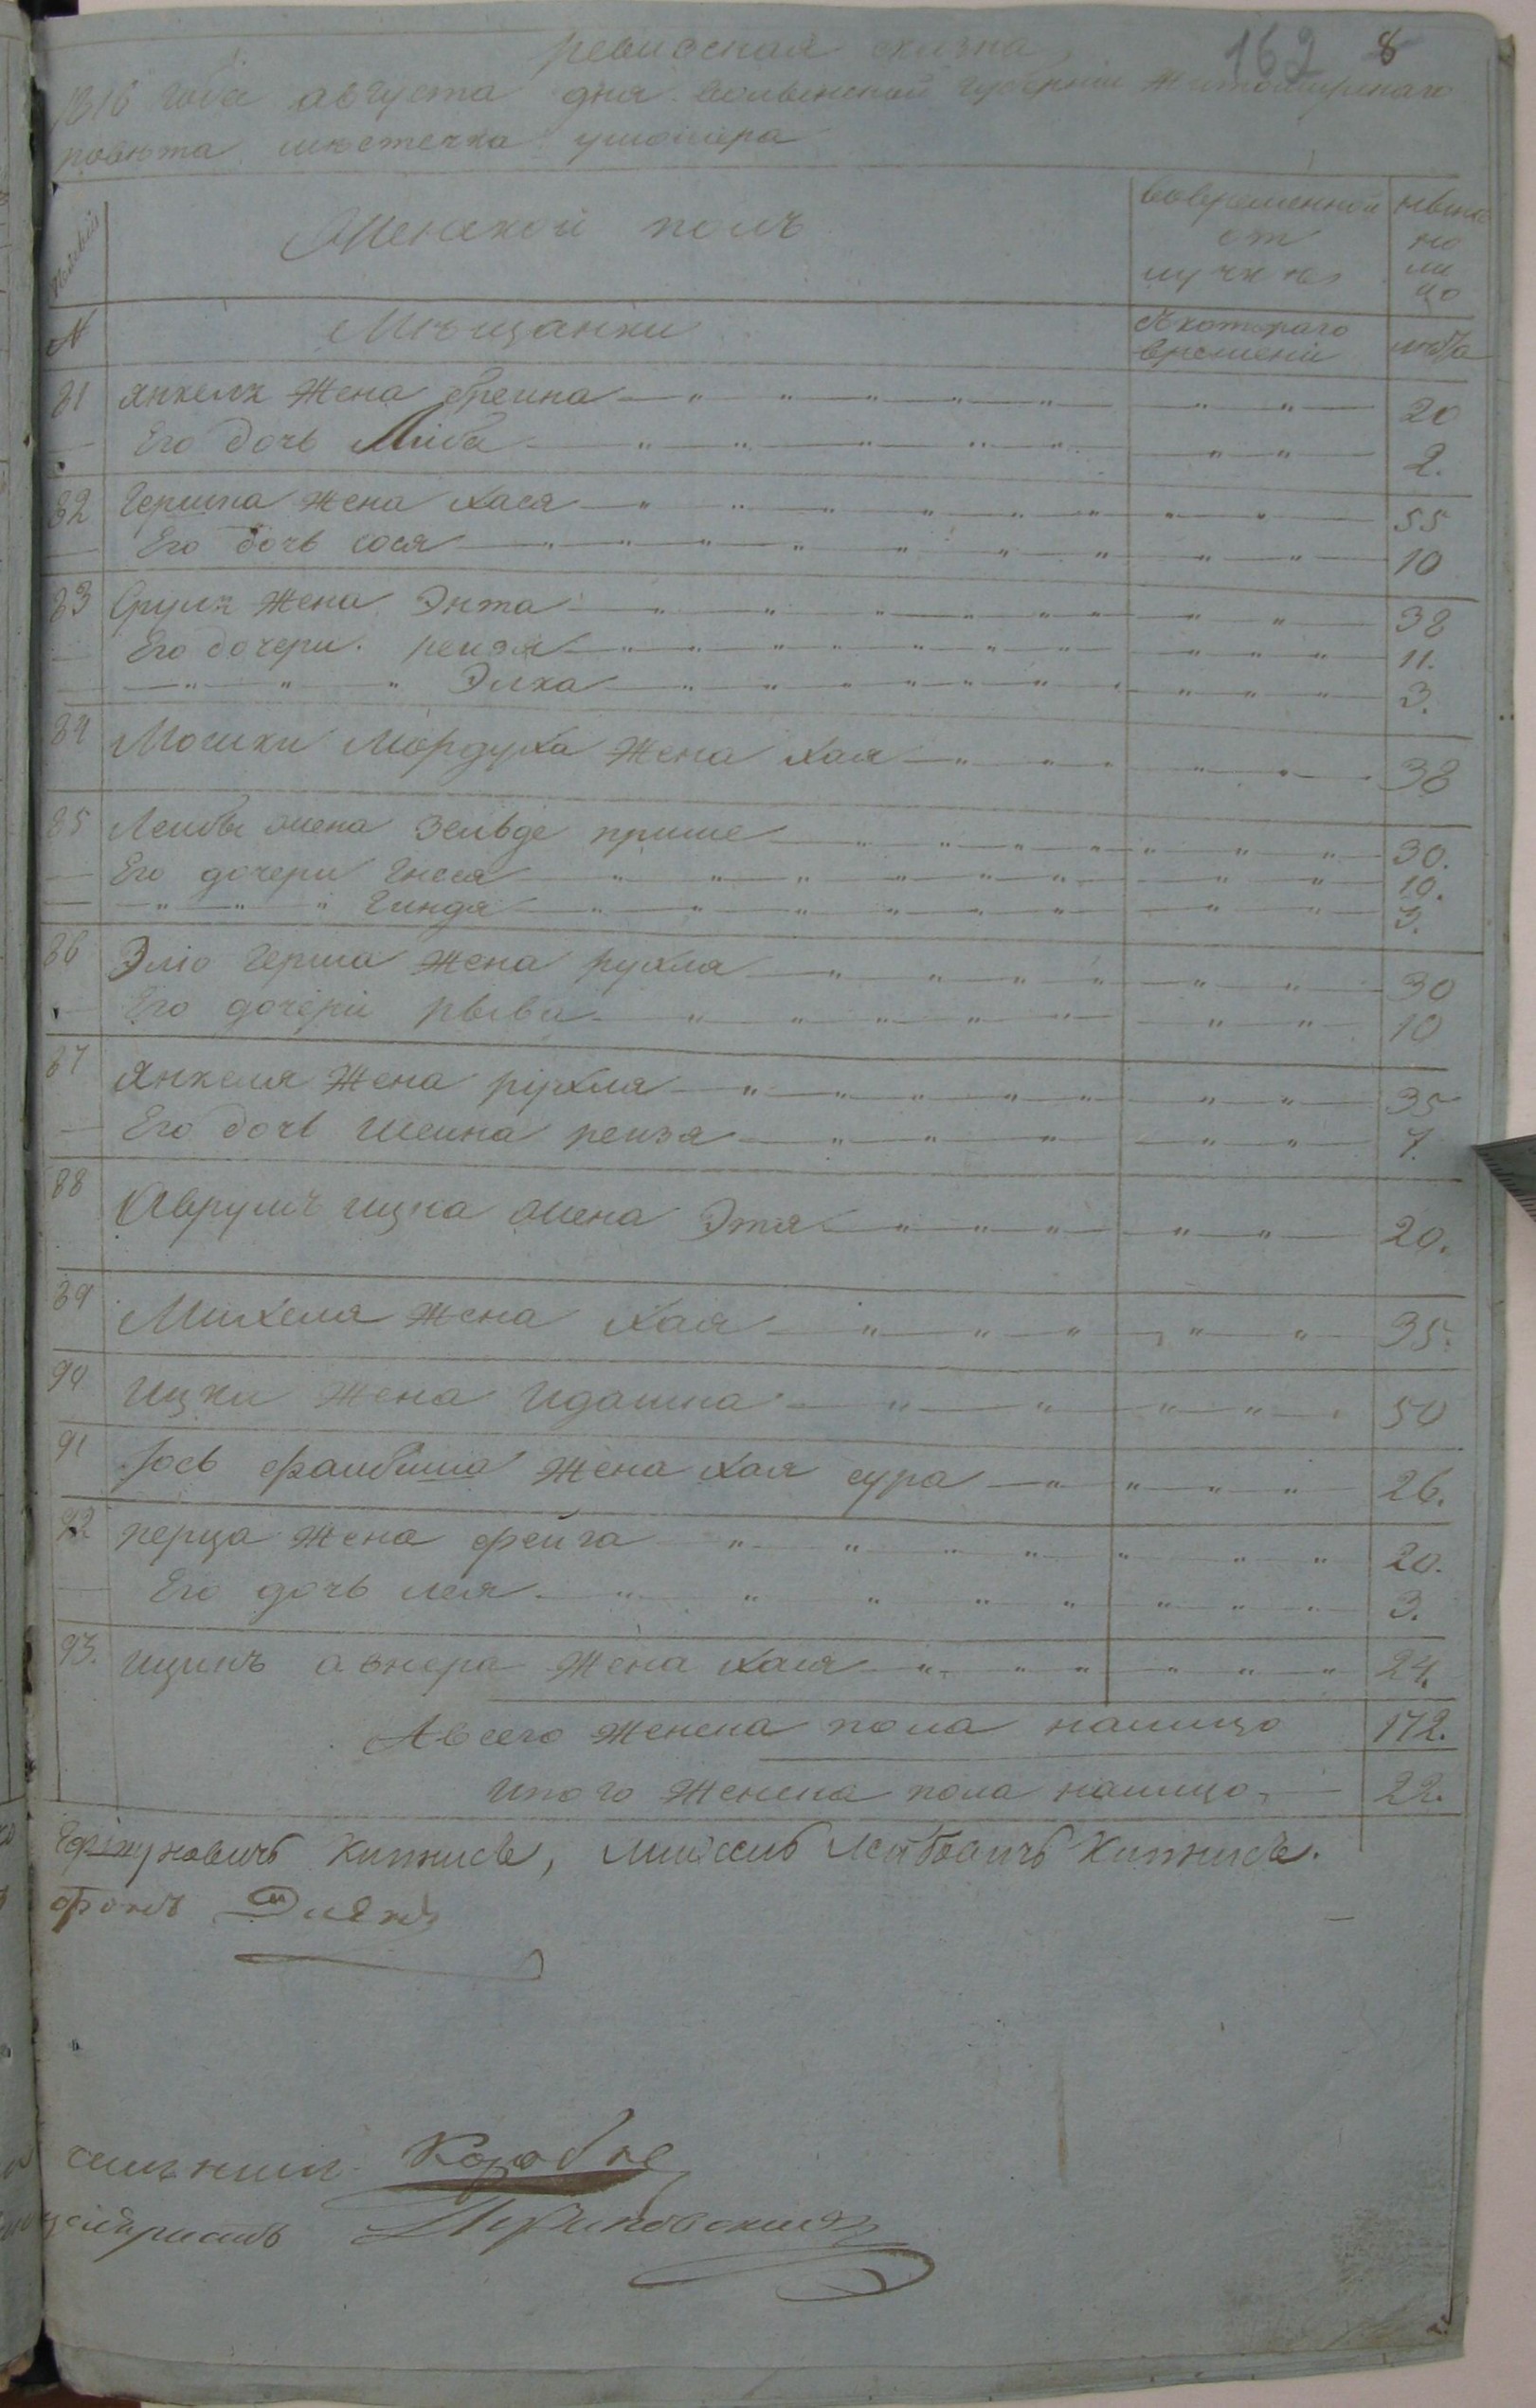 162 8
ревизская сказка
1816 года августа дня волынской губерніи житомирскаго
повѣта мѣстечка ушомера
Женской полъ
вовременной отлучке
нынѣ на лицо
№
Мѣщанки
Съ котораго времени
лѣта
81 Янкеля жена бреина 20
Его дочь Либа 2.
82 Гершка жена хася 55
Его дочь сося 10
83 Сруля жена Энта 38
Его дочери реизя 11.
Элка 3.
84 Мошки Мордуха жена хая 38
85 Лейбы жена Зельде 30.
Его дочери Гнеся 10.
Гиндя 3.
86 Эліо Герша жена рухля 30
Его дочери рыва 10
87 Янкеля жена рухля 35
Его дочь Шеина реизя 7.
88 Аврумъ ицка жена Этя 20.
89 Михеля жена хая 35.
90 Ицки жена Идашка 50
91 Іось фаибиша жена хая сура 26.
92 перца жена фейга 20.
Его дочь лея 3.
93. ицикъ авнера жена хая 24.
А всего женска пола налицо 172.
Итого женска пола налицо 22.
Кипнисъ, Лейбовичъ Кипнисъ.